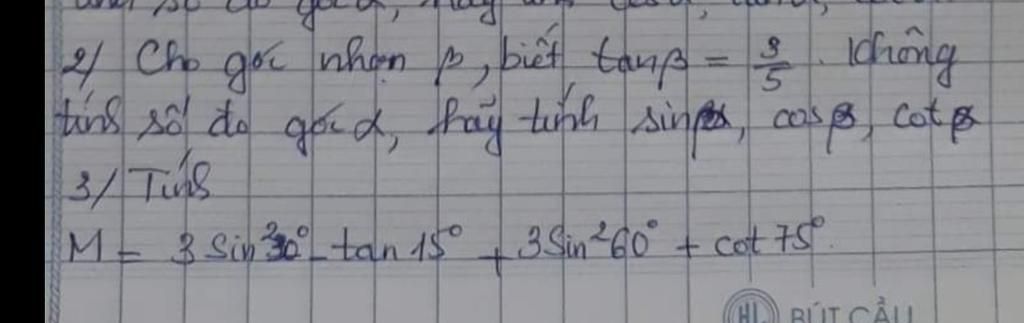 2/ Cho góc nhọn β, biết tanβ = 3/5. Không
tính số đo góc α, hãy tính sinβ, cosβ, cotβ
3/ Tính
M = 3 Sin²30° - tan 15° + 3 Sin²60° + cot 75°.
HL BÚT CẨU